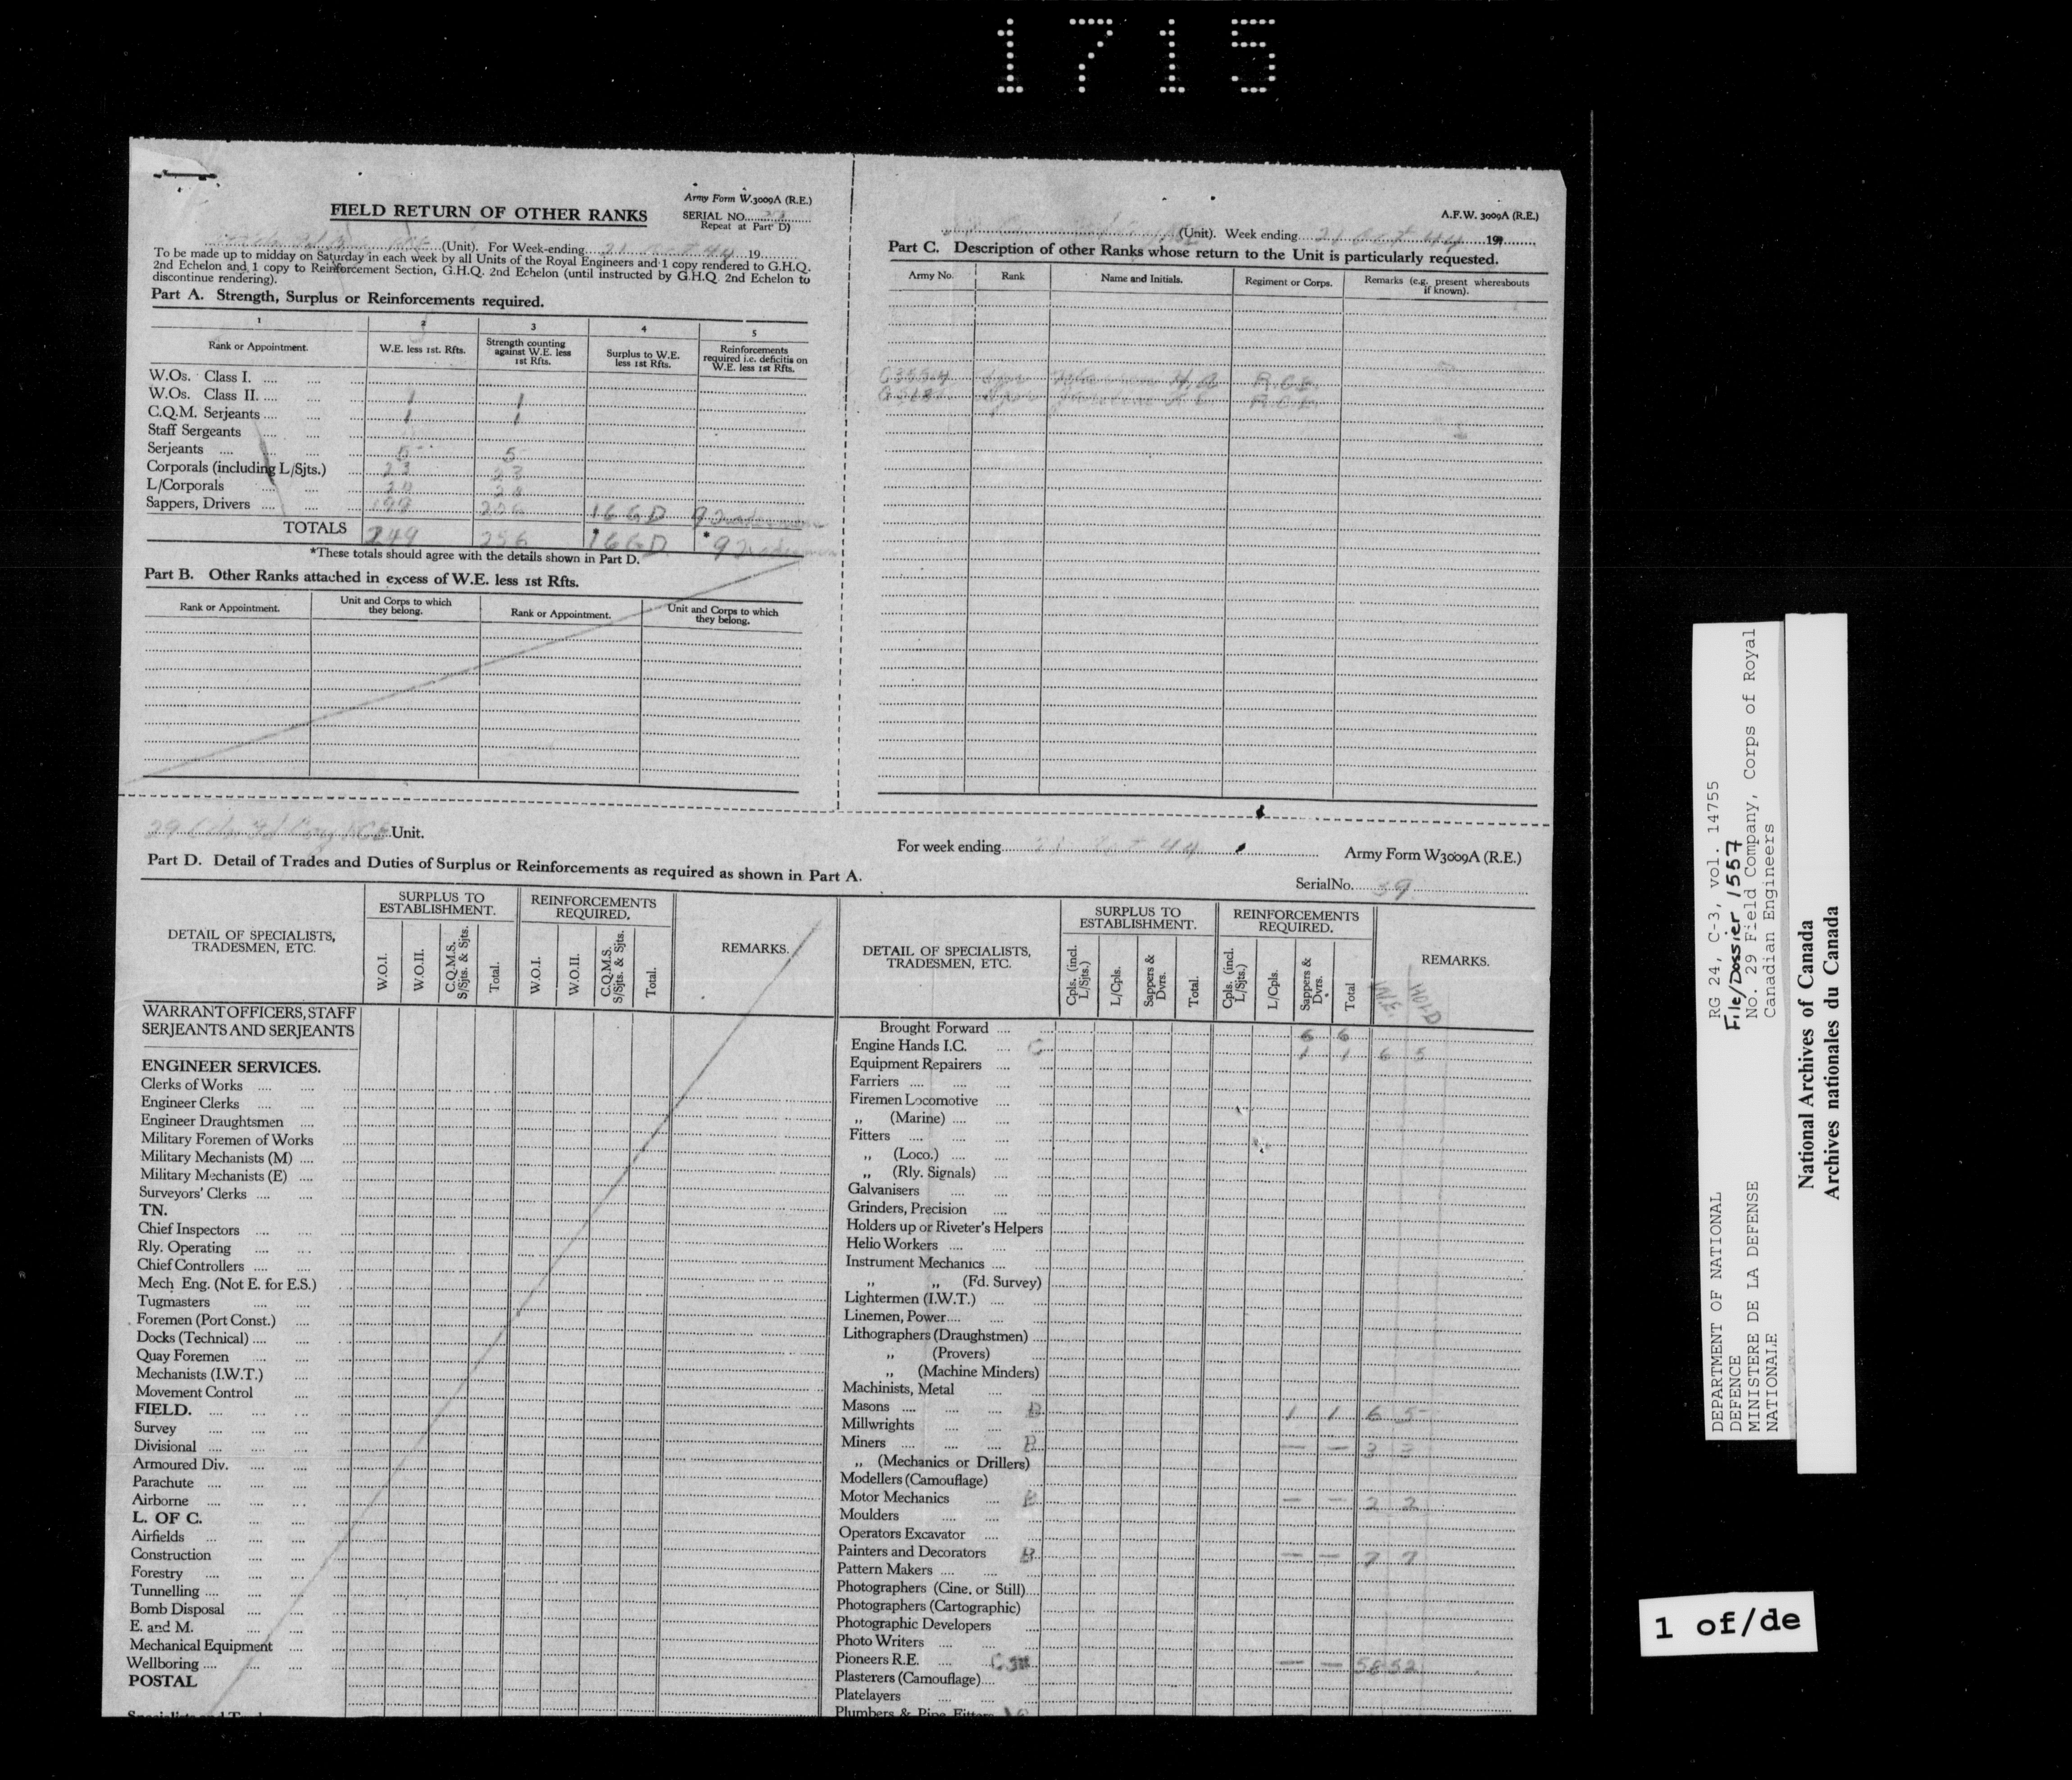 1715
Army Form W.3009A (R.E.)
FIELD RETURN OF OTHER RANKS
SERIAL NO.
Repeat at Part D)
(Unit). For Week-ending 21 Oct 44 19
To be made up to midday on Saturday in each week by all Units of the Royal Engineers and 1 copy rendered to G.H.Q.
2nd Echelon and 1 copy to Reinforcement Section, G.H.Q. 2nd Echelon (until instructed by G.H.Q. 2nd Echelon to
discontinue rendering).
Part A. Strength, Surplus or Reinforcements required.
1 2 3 4 5
Rank or Appointment. W.E. less 1st. Rfts. Strength counting against W.E. less 1st Rfts. Surplus to W.E. less 1st Rfts. Reinforcements required i.e. deficitis on W.E. less 1st Rfts.
W.Os. Class I.
W.Os. Class II. 1 1
C.Q.M. Serjeants 1 1
Staff Sergeants
Serjeants 5 5
Corporals (including L/Sjts.) 23 23
L/Corporals 20 20
Sappers, Drivers 199 206 16 GD 9 Tradesmen
TOTALS 249 256 *16 GD *9 Tradesmen
*These totals should agree with the details shown in Part D.
Part B. Other Ranks attached in excess of W.E. less 1st Rfts.
Rank or Appointment. Unit and Corps to which they belong. Rank or Appointment. Unit and Corps to which they belong.
A.F.W. 3009A (R.E.)
(Unit). Week ending 21 Oct 44 19
Part C. Description of other Ranks whose return to the Unit is particularly requested.
Army No. Rank Name and Initials. Regiment or Corps. Remarks (e.g. present whereabouts if known).
Spr R.C.E.
Spr R.C.E.
29 Cdn Fd Coy RCE Unit.
For week ending 21 Oct 44 Army Form W3009A (R.E.)
Part D. Detail of Trades and Duties of Surplus or Reinforcements as required as shown in Part A.
Serial No. 39
DETAIL OF SPECIALISTS, TRADESMEN, ETC.
SURPLUS TO ESTABLISHMENT.
W.O.I. W.O.II. C.Q.M.S. S/Sjts. & Sjts. Total.
REINFORCEMENTS REQUIRED.
W.O.I. W.O.II. C.Q.M.S. S/Sjts. & Sjts. Total.
REMARKS.
WARRANT OFFICERS, STAFF
SERJEANTS AND SERJEANTS
ENGINEER SERVICES.
Clerks of Works
Engineer Clerks
Engineer Draughtsmen
Military Foremen of Works
Military Mechanists (M)
Military Mechanists (E)
Surveyors' Clerks
TN.
Chief Inspectors
Rly. Operating
Chief Controllers
Mech Eng. (Not E. for E.S.)
Tugmasters
Foremen (Port Const.)
Docks (Technical)
Quay Foremen
Mechanists (I.W.T.)
Movement Control
FIELD.
Survey
Divisional
Armoured Div.
Parachute
Airborne
L. OF C.
Airfields
Construction
Forestry
Tunnelling
Bomb Disposal
E. and M.
Mechanical Equipment
Wellboring
POSTAL
DETAIL OF SPECIALISTS, TRADESMEN, ETC.
SURPLUS TO ESTABLISHMENT.
Cpls. (incl. L/Sjts.) L/Cpls. Sappers & Dvrs. Total.
REINFORCEMENTS REQUIRED.
Cpls. (incl. L/Sjts.) L/Cpls. Sappers & Dvrs. Total
REMARKS.
W.E. HOLD
Brought Forward 6 6
Engine Hands I.C. C 1 1 6 5
Equipment Repairers
Farriers
Firemen Locomotive
,, (Marine)
Fitters
,, (Loco.)
,, (Rly. Signals)
Galvanisers
Grinders, Precision
Holders up or Riveter's Helpers
Helio Workers
Instrument Mechanics
,, ,, (Fd. Survey)
Lightermen (I.W.T.)
Linemen, Power
Lithographers (Draughstmen)
,, (Provers)
,, (Machine Minders)
Machinists, Metal
Masons B 1 1 6 5
Millwrights
Miners B — — 3 3
,, (Mechanics or Drillers)
Modellers (Camouflage)
Motor Mechanics B — — 2 2
Moulders
Operators Excavator
Painters and Decorators B — — 7 7
Pattern Makers
Photographers (Cine. or Still)
Photographers (Cartographic)
Photographic Developers
Photo Writers
Pioneers R.E. — — 58 52
Plasterers (Camouflage)
Platelayers
Plumbers & Pipe Fitters
DEPARTMENT OF NATIONAL
DEFENCE
MINISTERE DE LA DEFENSE
NATIONALE
RG 24, C-3, vol. 14755
File/Dossier 1557
No. 29 Field Company, Corps of Royal
Canadian Engineers
National Archives of Canada
Archives nationales du Canada
1 of/de